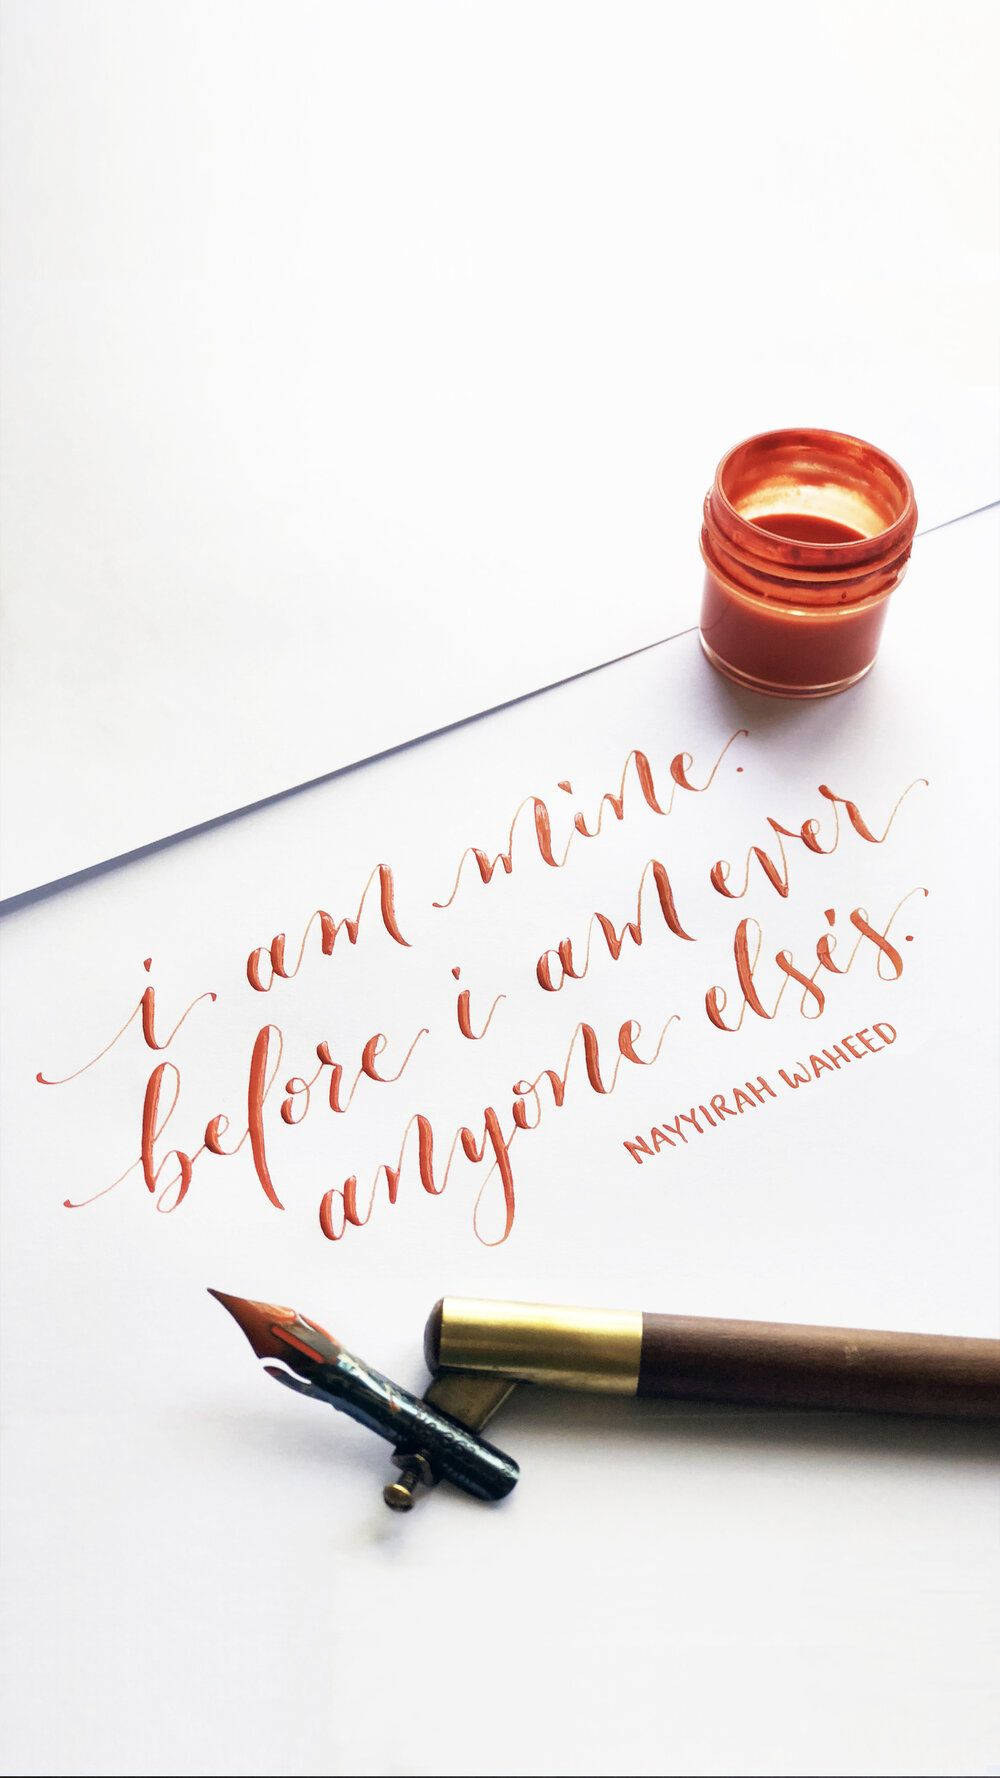 i am mine.
before i am ever
anyone else's.
NAYYIRAH WAHEED